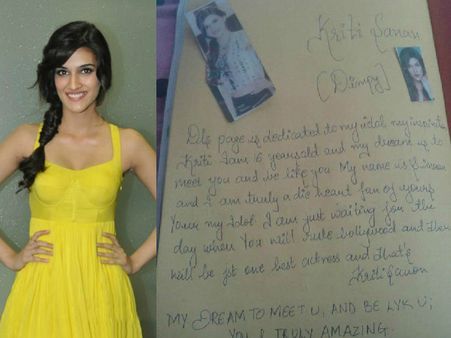 Kriti Sanon
(Dimpy)
Ds page is dedicated to my idol my favourite
Kriti I am 16 years old and my dream is to
meet you and be like you My name is
and I am truly a die heart fan of yours
Your my idol. I am just waiting for the
day when You will rule bollywood and there
will be jst one best actress and that's
Kriti Sanon
MY DREAM TO MEET U, AND BE LYK U;
YOU R TRULY AMAZING.